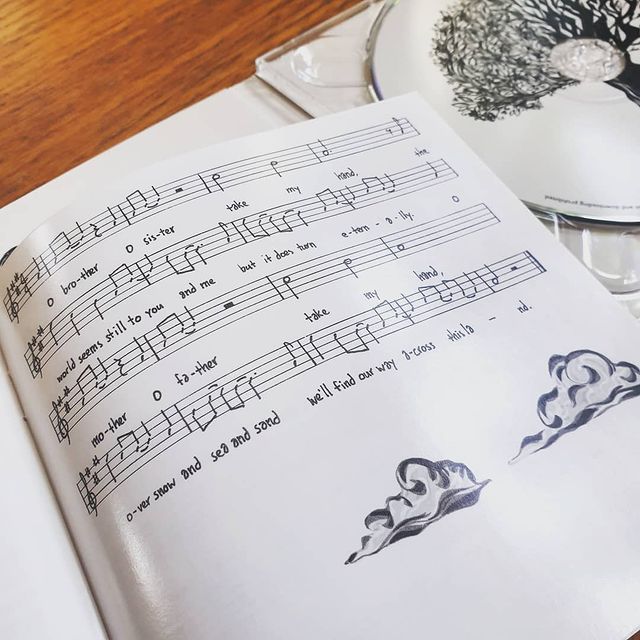 O bro-ther O sis-ter take my hand, the
world seems still to you and me but it does turn e-tern-a-lly. O
mo-ther O fa-ther take my hand,
o-ver snow and sea and sand we'll find our way a-cross this la - nd.